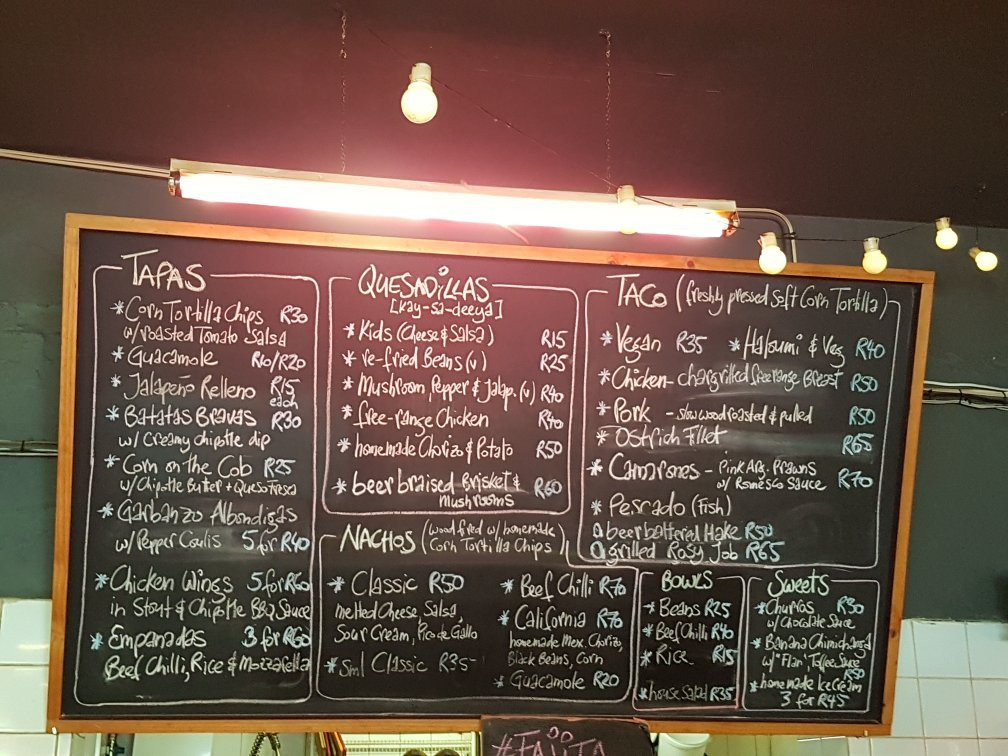 TAPAS
* Corn Tortilla Chips R30
w/roasted Tomato Salsa
* Guacamole R10/R20
* Jalapeño Relleno R15
each
* Batatas Bravas R30
w/ Creamy chipotle dip
* Corn on the Cob R25
w/ Chipotle Butter + Queso Fresca
* Garbanzo Albondigas
w/ Pepper Coulis 5 for R40
* Chicken Wings 5 for R60
in Stout & Chipotle BBQ Sauce
* Empanadas 3 for R60
Beef Chilli, Rice & Mozzarella
QUESADILLAS
[kay-sa-deeya]
* Kids (Cheese & Salsa) R15
* re-fried Beans (v) R25
* Mushroom, Pepper & Jalap. (v) R40
* free-range Chicken R40
* homemade Chorizo & Potato R50
* beer braised Brisket & R60
Mushrooms
NACHOS (wood fired w/ homemade
Corn Tortilla Chips)
* Classic R50
melted Cheese, Salsa,
Sour Cream, Pico de Gallo
* Sml Classic R35-
* Beef Chilli R70
* California R70
homemade Mex. Chorizo,
Black Beans, Corn
* Guacamole R20
TACO (freshly pressed soft Corn Tortilla)
* Vegan R35 * Haloumi & Veg R40
* Chicken - chargrilled free range Breast R50
* Pork - slow wood roasted & pulled R50
* Ostrich Fillet R65
* Camarones - Pink Arg. Prawns R70
w/ Romesco Sauce
* Pescado (Fish)
beer battered Hake R50
grilled Rosy Job R65
BOWLS
* Beans R25
* Beef Chilli R40
* Rice R15
* house Salad R35
SWEETS
* Churros R30
w/ Chocolate Sauce
* Banana Chimichanga
w/ "Flan", Toffee Sauce
R50
* homemade Ice Cream
3 for R45
#FAJITA